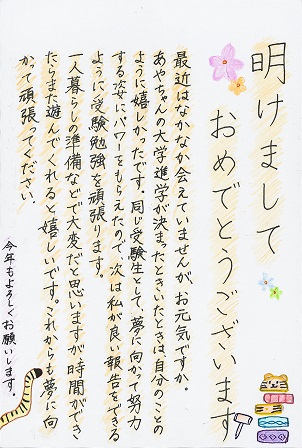 明けまして
おめでとうございます
最近はなかなか会えていませんが、お元気ですか。
あやちゃんの大学進学が決まったときいたときは、自分のことの
ように嬉しかったです。同じ受験生として、夢に向かって努力
する姿にパワーをもらえたので、次は私が良い報告をできる
ように受験勉強を頑張ります。
一人暮らしの準備などで大変だと思いますが時間ができ
たらまた遊んでくれると嬉しいです。これからも夢に向
かって頑張ってください。
今年もよろしくお願いします。